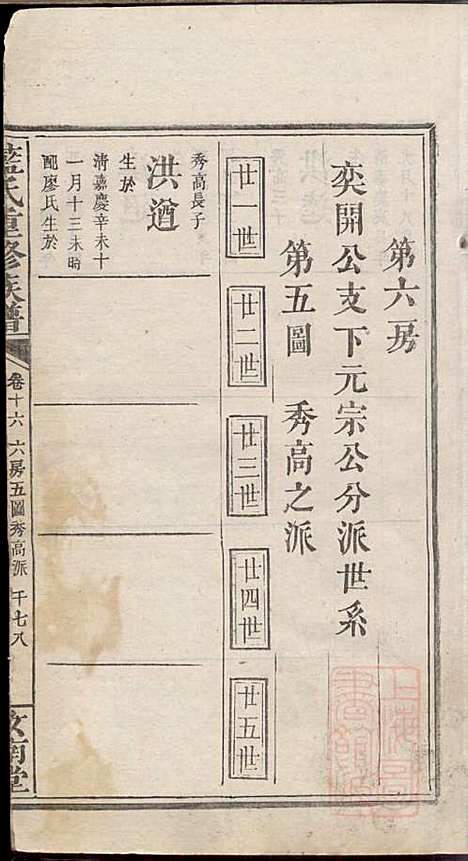 第六房
奕開公支下元宗公分派世系
第五圖 秀高之派
廿一世
廿二世
廿三世
廿四世
廿五世
秀高長子
洪遒
生於
清嘉慶辛未十
一月十三未時
配廖氏生於
藍氏重修族譜
卷十六 六房五圖秀高派
汝南堂